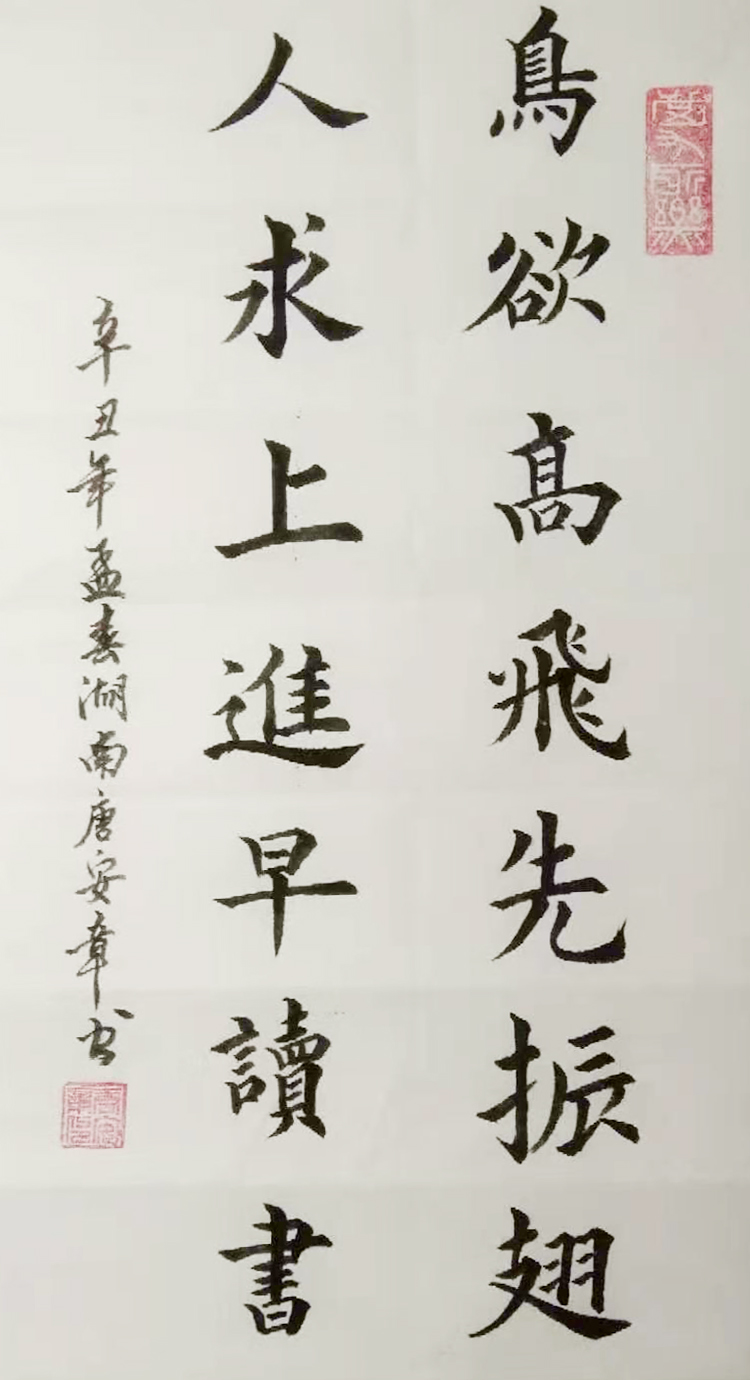 鳥欲高飛先振翅
人求上進早讀書
辛丑年孟春湖南唐安章书